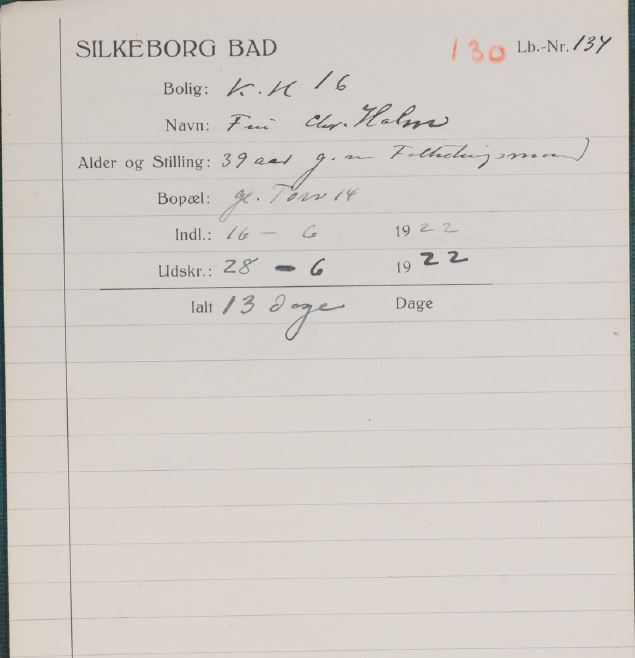 SILKEBORG BAD 130 Lb.-Nr. 134
Bolig: K. K 16
Navn: Fru Chr. Holm
Alder og Stilling: 39 aar g. m
Bopæl: gl. Torv 14
Indl.: 16 - 6 1922
Udskr.: 28 - 6 1922
Ialt 13 dage Dage